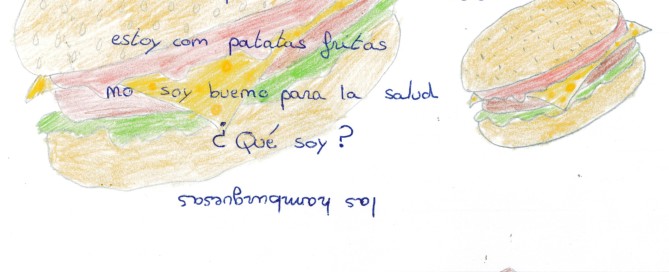 estoy com patatas fritas
mo soy buemo para la salud
¿ Qué soy ?
las hamburguesas